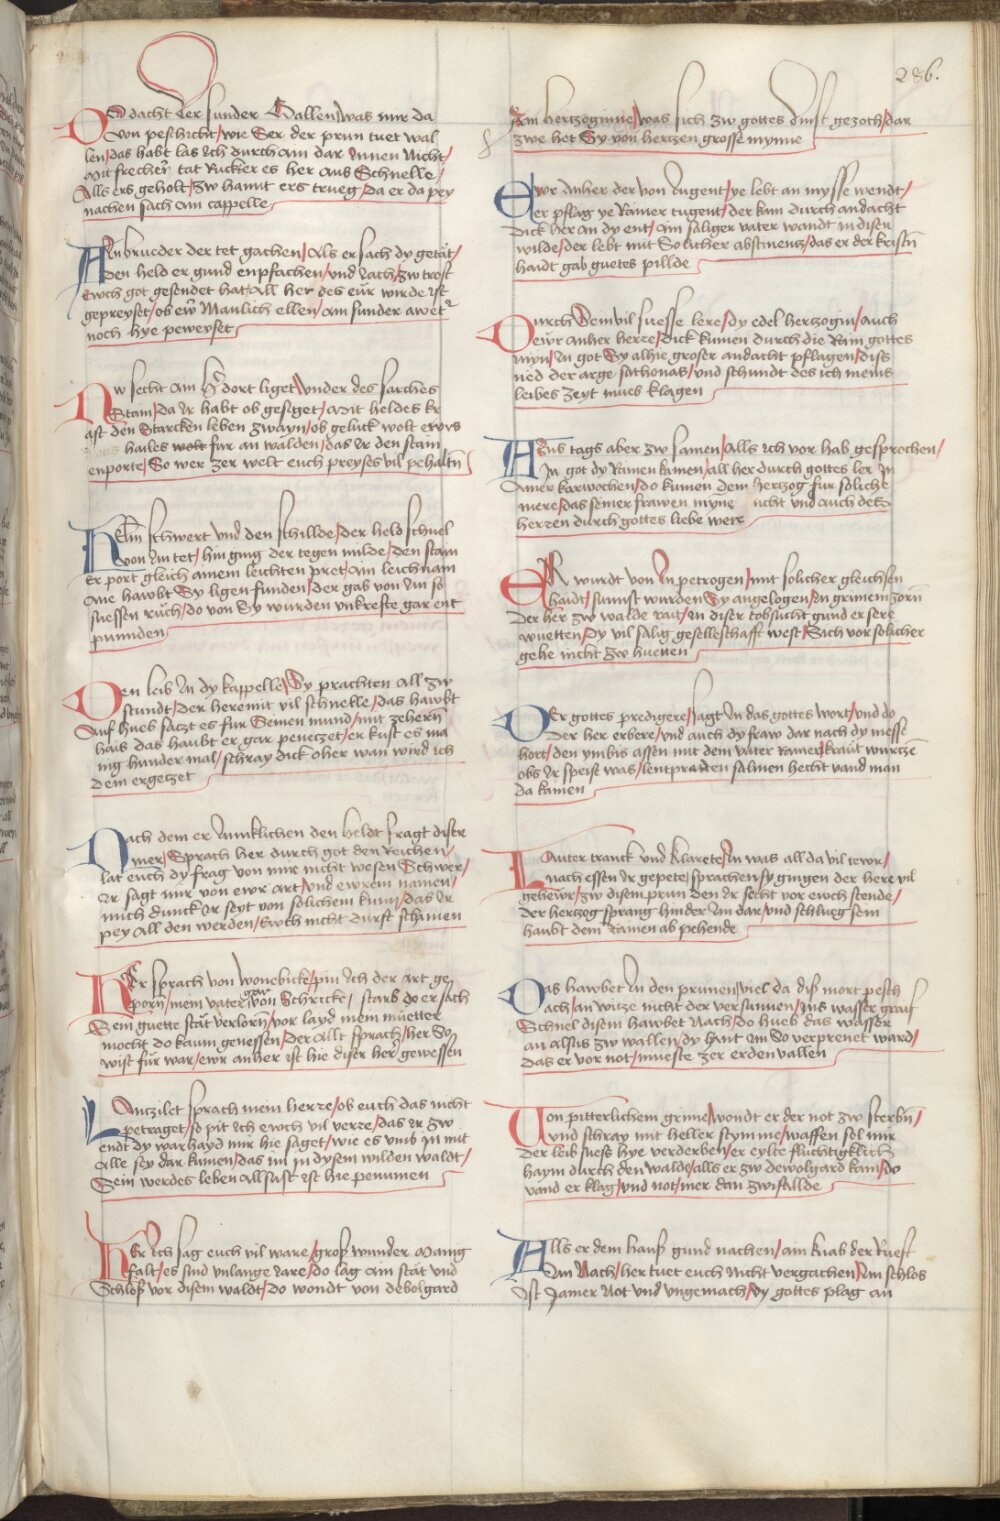 286.
Do dacht der sunder Hallen/was mir da
von peschicht/wie Ser der prun tuet wal
len/das habt las ich durch ain dar Innen Nicht/
Mit frecher tat Rucket es her aus Schnelle/
Alls ers geholt/zw hannt ers trueg/da er da pey
nachen sach ain cappelle
Ain brueder der tet gachen/Als er sach dy getät/
Den held er gund enpfachen/vnd iach/zw trost
Ewch got gesendet hat/All her des eur wirde ist
gepreyset/ob ewr Manlich ellen/ain sunder awer
noch hye peweyset
Nw secht am h dort liget/vnder des sarches
Stain/Da ir habt ob gesiget/Mit heldes kr
aft den Starcken leben zwayn/ob geluck wolt ewrs
hailes wolt fur an walden/das ir den stain
enporte/So wer zer welt euch preyses vil pehaltn
Sein schwert vnd den schillde/der held schnel
von im tet/hin ging der tegen milde/den stain
er port gleich ainem leichten pret/ain leichnam
one hawbt Sy ligen funden/der gab von im so
suessen ruch/do von Sy wurden vnkrefte gar ent
punnden
Den leib in dy kappelle/Sy prachten all zw
stundt/der heremit vil schnelle/das hawbt
Auf hueb saczt es fur Seinen mund/mit zehern
hais das haubt er gar peneczet/er kust es ma
nig hunder mal/schray dick oher wan wird ich
dein ergeczet
Nach dem er Inniklichen den heldt fragt diser
mer/Sprach her durch got den Reichen/
lat euch dy frag von mir nicht wesen Schwer/
ir sagt mir von ewr art/vnd ewrem namen/
mich dunck ir seyt von solichem kunn/das ir
pey all den werden/Ewch nicht durft schamen
Er sprach von wonebicke/pin ich der art ge
porn/mein vater gaw von Schricke/starb do er sach
Sein guette stät verlorn/vor layd mein mueter
mocht do kaum genessen/Der Allt sprach/her So
wist fur war/ewr anher ist hie diser her gewessen
Lanczilet sprach mein herre/ob euch das nicht
petraget/so pit ich ewch vil verre/das ir zw
endt dy warhayd mir hie saget/wie es vmb in mit
alle sey dar kumen/das im in dysem wilden waldt/
Sein werdes leben allsust ist hie penumen
Her ich sag euch vil ware/gros wunder Manig
falt/es sind vnlange iare/do lag ain stat vnd
Schloss vor disem waldt/do wondt von debolgard
Ain herczoginne/was sich zw gottes dinst gezoch/dar
zwe het Sy von herczen grosse mynne
Ewr Anher der von Iugent/ye lebt an mysse wendt/
er pflag ye Rainer tugent/der kam durch andacht
Dick her an dy ent/Ain saliger vater wandt in disen
wilde/der lebt mit Solicher abstinenz/das er der kristn
haidt gab guetes pillde
Durch Dem vil suesse lere/dy edel herczogin/auch
Ewr anher herre/dick kumen durch die Rain gottes
myn/In got Sy alhie groser andacht pflagen/diss
neid der arge sathanas/vnd schundt des ich meins
leibes zeyt mues klagen
Ains tags aber zw samen/Alls ich vor hab gesprochen/
In got dy Rainen kamen/all her durch gottes ler In
Ainer karwochen/do kumen dem Herczog fur soliche
mere/das seiner frawen myne nicht vnd auch des
herren durch gottes liebe were
Er wurdt von In petrogen/mit solicher gleichsen
haidt/sunnst wurden Sy angelogen/In grimem zorn
Der her zw walde rait/in diser tobsucht gund er sere
wuetten/dy vil salig geselleschafft west/Sich vor solicher
gehe nicht zw hueten
Der gottes predigere/sagt In das gottes wort/vnd do
Der her erbere/vnd auch dy fraw dar nach dy messe
hort/den ymbis assen mit dem vater Rainer/kraut wurcze
obs ir speist was/lentpraten salmen hecht vand man
da kainen
Lauter tranck vnd klarete/In was all da vil tewr/
nach essen ir gepete/sprachen/sy gingen der here vil
gehewr/zw disem prun den ir secht vor ewch stende/
der herczog sprang hinder In dar/vnd schlueg sein
haubt dem Rainen ab pehende
Das hawbet In den prunnen/viel da diss mort pesch
ach/an wicze nicht der versunnen/Ins wasser graif
Schnel disem hawbet Nach/do hueb das wasser
an alsus zw wallen/dy hant im So verprenet ward/
das er vor not/mueste zer erden vallen
Von pitterlichem grime/wondt er der not zw sterbn/
vnd schray mit heller stymme/waffen sol mir
Der leib suess hye verderben/er eylte fluchtigklich
haym durch den walde/alls er zw dewolgard kam/do
vand er klag/vnd not/mer dan zwisallde
Alls er dem haus gund nachen/ain knab der Rueft
Im Nach/her tuet euch nicht vergachen/Im schlos
Ist Jamer Not vnd vngemach/dy gottes plag an